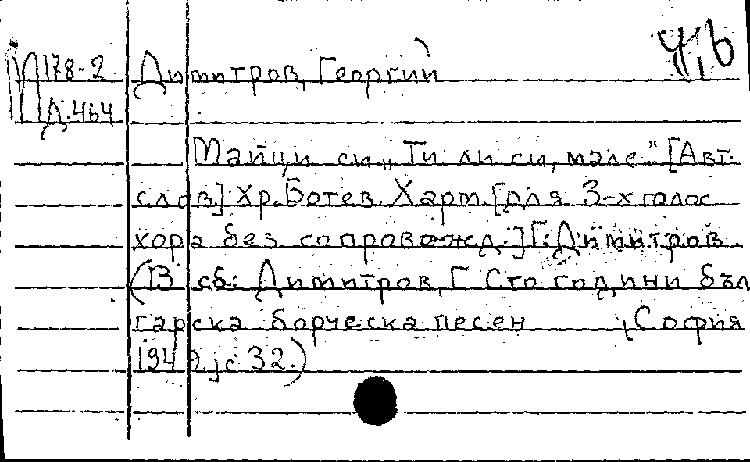 П178-2 Димитров, Георгий
Д.464
Майци си „Ти ли си, мале“ [Авт.
слов] Хр. Ботев. Харт. [для 3-х голос
хора без сопровожд.] Г. Димитров
(В сб: Димитров, Г. Сто години бъл
гарска борческа песен, София
с 32.)